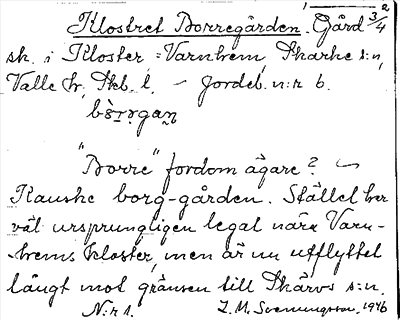 1 2
Klostret Borregården. Gård 3/4
sk. i Kloster = Varnhem, Skarke s:n,
Valle hr, Skb. l. – Jordeb. n:r 6.
"Borre" fordom ägare? –
Kanske borg-gården. Stället har
väl ursprungligen legat nära Varn-
-hems kloster, men är nu utflyttet
långt mot gränsen till Skärvs s:n.
N:r 1. L. M. Svenungsson, 1946